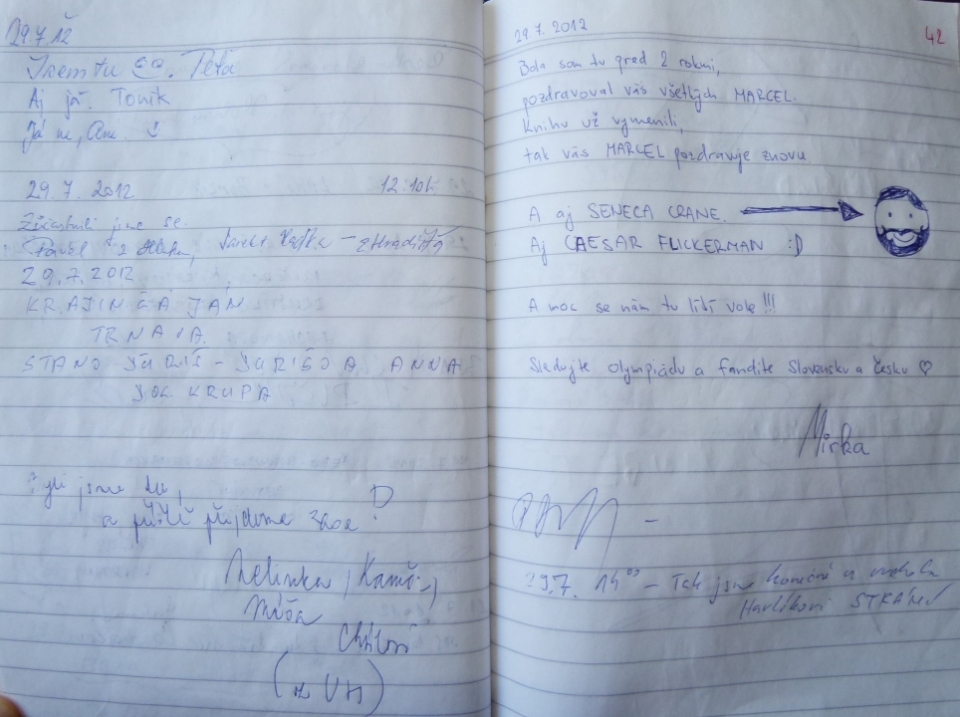 29.7.12
Péťa
Aj já. Toník
Já ne, Ane.
29.7.2012 12:10h.
jsme se
29.7.2012
KRAJINČA JÁN
TRNAVA
STANO JURIŠ - JURIŠOVA ANNA
KRUPA
jsme tu,
a příště přijdeme zase
Kamč
Míša
(z UH)
29.7. 2012 42
Bola som tu pred 2 rokmi,
pozdravoval vás všetkých MARCEL.
Knihu už vymenili,
tak vás MARCEL pozdravuje znovu
A aj SENECA CRANE.
Aj CAESAR FLICKERMAN :D
A moc se nám tu líbí vole!!!
Sledujte olympiádu a fandite Slovensku a Česku ♡
Mirka
29.7. 14 - Tak jsme konečně u vrcholu